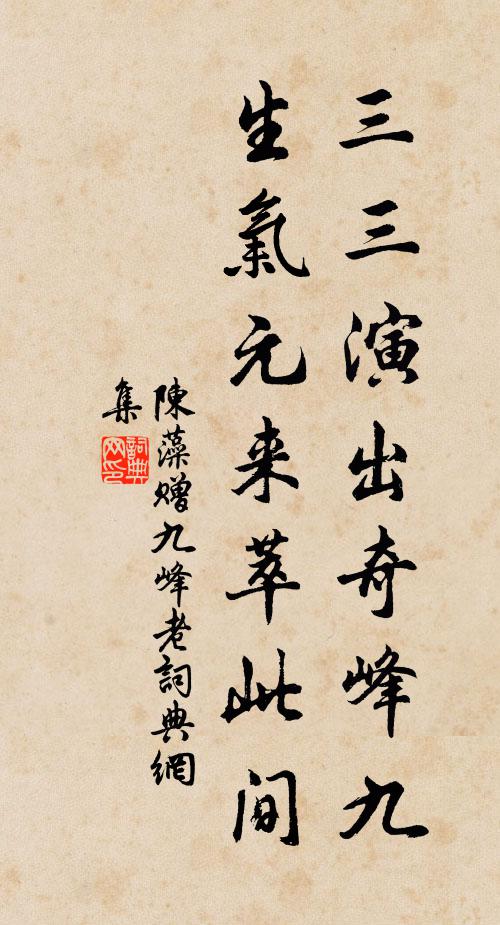 三三演出奇峰九
生氣元来萃此間
陳藻贈九峰老詞典網
集
詞典网印